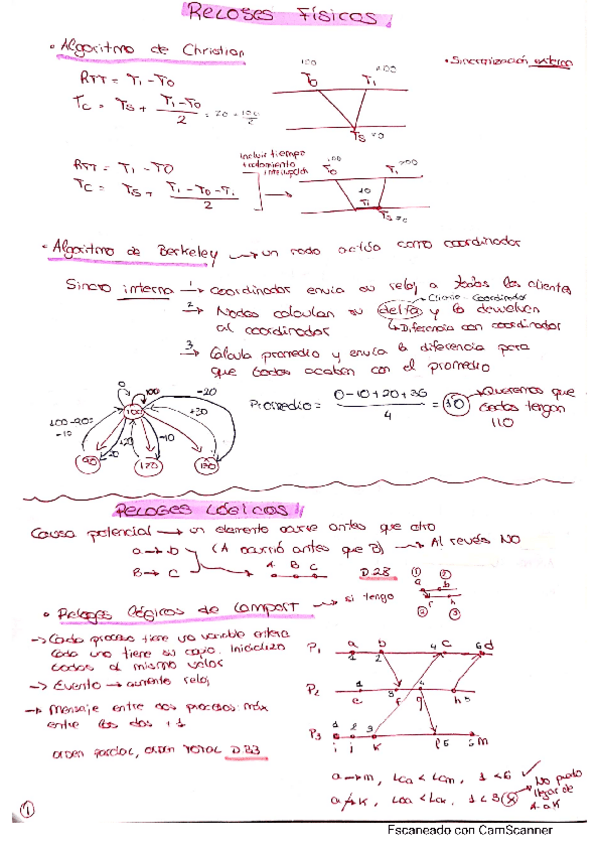 RELOJES FÍSICOS
• Algoritmo de Christian
• Sincronización externa
RTT = T1 - T0
TC = TS + T1-T0 / 2 = 20 + 100/2
100 200
T0 T1
TS=0
RTT = T1 - T0
TC = TS + T1-T0-T. / 2
Incluir tiempo
tratamiento
interrupción
100 200
T0 T1
10
TI
• Algoritmo de Berkeley → un nodo actúa como coordinador
Sincro interna 1→ coordinador envía su reloj a todos los clientes
2→ Nodos calculan su delta y lo devuelven
al coordinador
Cliente - Coordinador
↳ Diferencia con coordinador
3→ Calcula promedio y envía la diferencia para
que todos acaben con el promedio
0 100 -20
100
+30
-10
+20 -10
90 20 120 130
Promedio = 0-10+20+30 / 4 = 10 → Queremos que
todos tengan
110
RELOGES LÓGICOS
Causa potencial → un elemento ocurre antes que otro
a → b (A ocurrió antes que B) → Al revés NO
B → C
A B C
D28
• Relojes lógicos de Lamport → si tengo
→ Cada proceso tiene una variable entera
cada uno tiene su copia. Inicializo
todos al mismo valor
→ Evento → aumento reloj
→ Mensaje entre dos procesos máx
entre los dos + 1
orden parcial, orden TOTAL D33
P1 a b 4 c 6 d
1 2
P2 1 3 4
e f g h 5
P3 1 2 3
i j k l 5 6 m
a → m, LCa < LCm, 1 < 6 ✓
a ↛ k, LCa < LCk, 1 < 3 → No puedo
llegar de
A a K
1
Escaneado con CamScanner